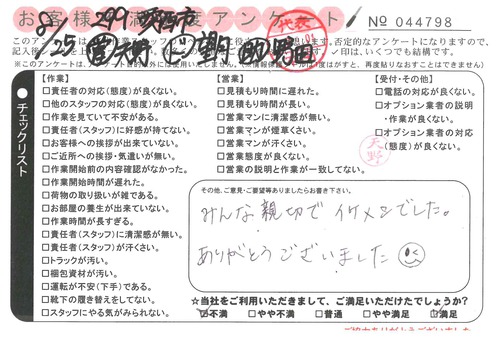 お客様満足度アンケート
No 044798
8/25
299
このアンケートは、
否定的なアンケートになりますので、
記入後アンケート
いつでも結構です。
代表
チェックリスト
【作業】
□責任者の対応(態度)が良くない。
□他のスタッフの対応(態度)が良くない。
□作業を見ていて不安がある。
□責任者(スタッフ)に好感が持てない。
□お客様への挨拶が出来ていない。
□ご近所への挨拶・気遣いが無い。
□作業開始前の内容確認がなかった。
□作業開始時間が遅れた。
□荷物の取り扱いが雑である。
□お部屋の養生が出来ていない。
□作業時間が長すぎる。
□責任者(スタッフ)に清潔感が無い。
□責任者(スタッフ)が汗くさい。
□トラックが汚い。
□梱包資材が汚い。
□運転が不安(下手)である。
□靴下の履き替えをしてない。
□スタッフにやる気がみられない。
【営業】
□見積もり時間に遅れた。
□見積もり時間が長い。
□営業マンに清潔感が無い。
□営業マンが煙草くさい。
□営業マンが汗くさい。
□営業態度が良くない。
□営業の説明と作業が一致してない。
【受付・その他】
□電話の対応が良くない。
□オプション業者の説明
・作業が良くない。
□オプション業者の対応
(態度)が良くない。
天野
その他、ご意見・ご要望等ありましたらお書き下さい。
みんな親切でイケメンでした。
ありがとうございました
☆当社をご利用いただきまして、ご満足いただけてでしょうか?
☑不満 □やや不満 □普通 □やや満足 □満足
ご協力ありがとうございました